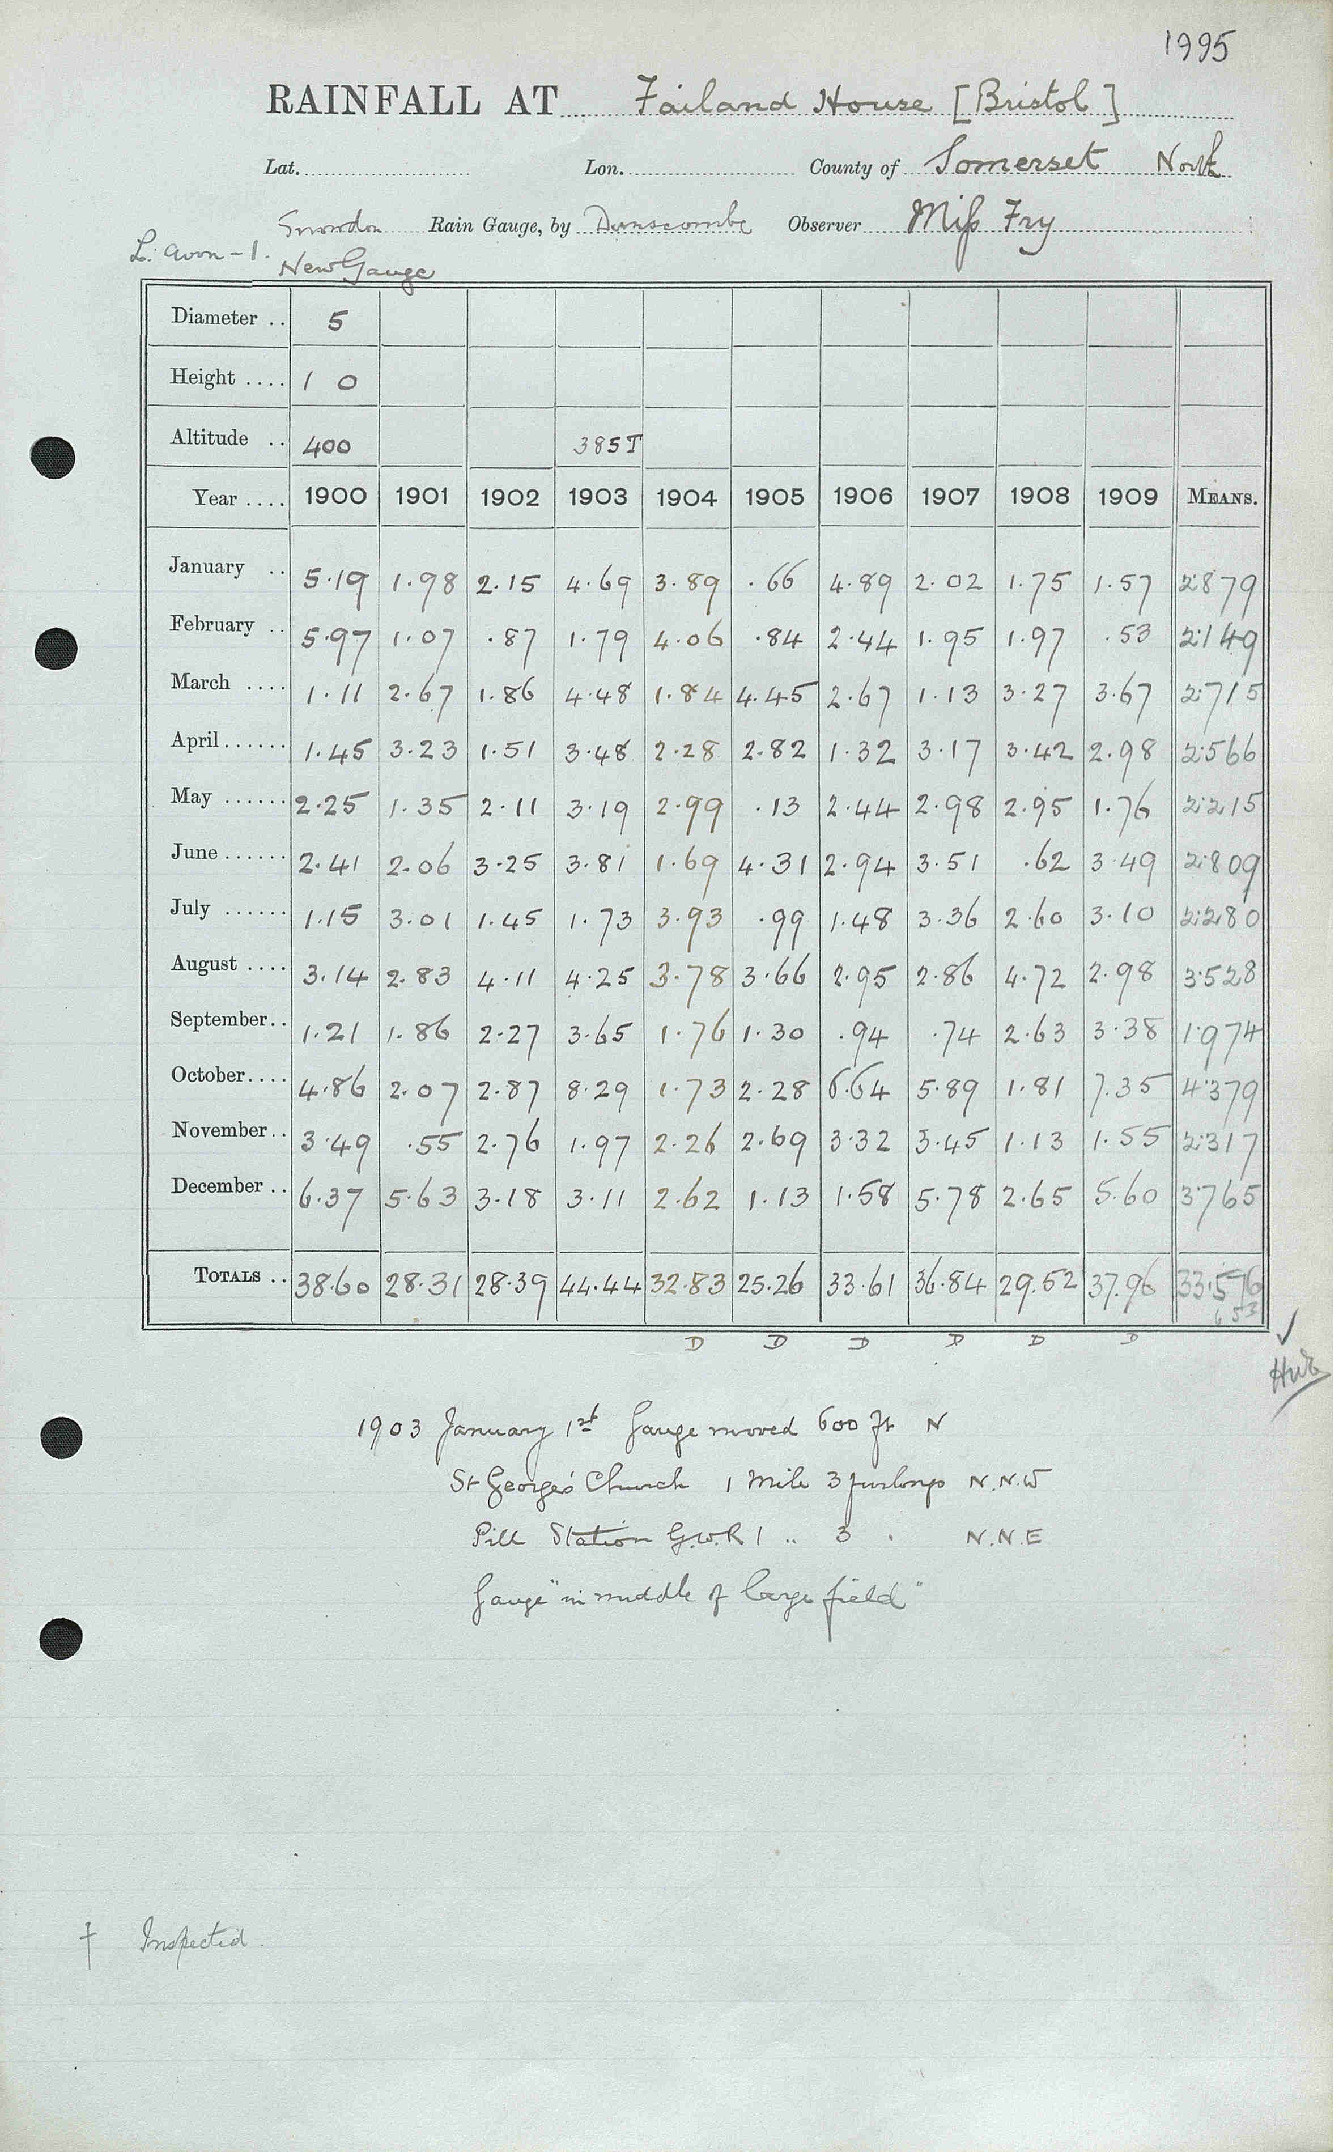 1995
RAINFALL AT Failand House [Bristol]
Lat. Lon. County of Somerset North
Snowdon Rain Gauge, by Dunscombe Observer Miss Fry
L. Avon - 1. New Gauge
Diameter .. 5
Height .... 1 0
Altitude .. 400 385T
Year .... 1900 1901 1902 1903 1904 1905 1906 1907 1908 1909 MEANS.
January .. 5.19 1.98 2.15 4.69 3.89 .66 4.89 2.02 1.75 1.57 2.879
February .. 5.97 1.07 .87 1.79 4.06 .84 2.44 1.95 1.97 .53 2.149
March .... 1.11 2.67 1.86 4.48 1.84 4.45 2.67 1.13 3.27 3.67 2.715
April ...... 1.45 3.23 1.51 3.48 2.28 2.82 1.32 3.17 3.42 2.98 2.566
May ...... 2.25 1.35 2.11 3.19 2.99 .13 2.44 2.98 2.95 1.76 2.215
June ...... 2.41 2.06 3.25 3.81 1.69 4.31 2.94 3.51 .62 3.49 2.809
July ...... 1.15 3.01 1.45 1.73 3.93 .99 1.48 3.36 2.60 3.10 2.280
August .... 3.14 2.83 4.11 4.25 3.78 3.66 2.95 2.86 4.72 2.98 3.528
September .. 1.21 1.86 2.27 3.65 1.76 1.30 .94 .74 2.63 3.38 1.974
October .... 4.86 2.07 2.87 8.29 1.73 2.28 6.64 5.89 1.81 7.35 4.379
November .. 3.49 .55 2.76 1.97 2.26 2.69 3.32 3.45 1.13 1.55 2.317
December .. 6.37 5.63 3.18 3.11 2.62 1.13 1.58 5.78 2.65 5.60 3.765
TOTALS .. 38.60 28.31 28.39 44.44 32.83 25.26 33.61 36.84 29.52 37.96 33.576
6 53
D D D D D D
1903 January 1st Gauge moved 600 ft N
St George's Church 1 Mile 3 furlongs N.N.W
Pill Station G.W.R 1 .. 3 . N.N.E
Gauge "in middle of large field"
† Inspected